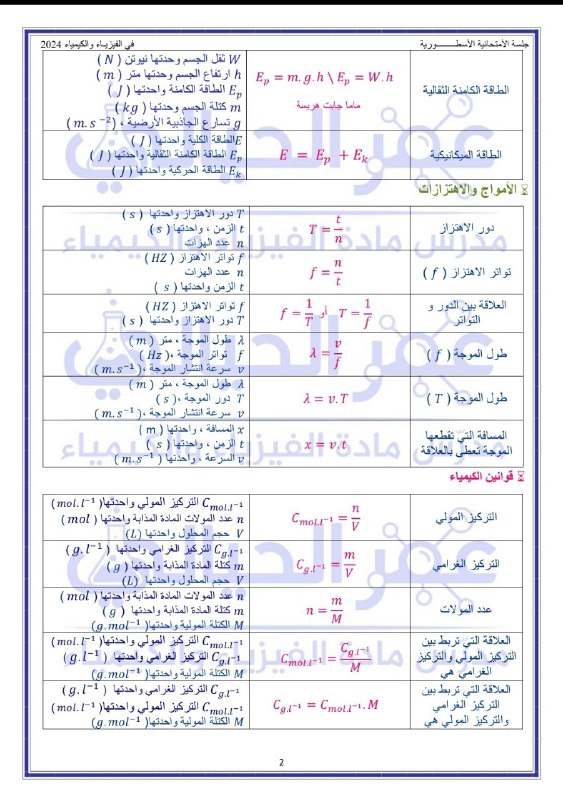 جلسة الأمتحانية الأسطـــــــورية
في الفيزياء والكيمياء 2024
الطاقة الكامنة الثقالية
E_p = m.g.h \ E_p = W.h
ماما جابت هريسة
W ثقل الجسم وحدتها نيوتن ( N )
h ارتفاع الجسم وحدتها متر ( m )
E_p الطاقة الكامنة واحدتها ( J )
m كتلة الجسم وحدتها ( kg )
g تسارع الجاذبية الأرضية ، ( m.s⁻² )
الطاقة الميكانيكية
E = E_p + E_k
E الطاقة الكلية واحدتها ( J )
E_p الطاقة الكامنة الثقالية واحدتها ( J )
E_k الطاقة الحركية واحدتها ( J )
الأمواج والاهتزازات
دور الاهتزاز
T = t/n
T دور الاهتزاز واحدتها ( s )
t الزمن ، واحدتها ( s )
n عدد الهزات
تواتر الاهتزاز ( f )
f = n/t
f تواتر الاهتزاز ( HZ )
n عدد الهزات
t الزمن واحدتها ( s )
العلاقة بين الدور و
التواتر
T = 1/f أو f = 1/T
f تواتر الاهتزاز ( HZ )
T دور الاهتزاز واحدتها ( s )
طول الموجة ( f )
λ = v/f
λ طول الموجة ، متر ( m )
f تواتر الموجة ، ( Hz )
v سرعة انتشار الموجة ، ( m.s⁻¹ )
طول الموجة ( T )
λ = v.T
λ طول الموجة ، متر ( m )
T دور الموجة ، ( s )
v سرعة انتشار الموجة ، ( m.s⁻¹ )
المسافة التي تقطعها
الموجة تعطى بالعلاقة
x = v.t
x المسافة ، واحدتها ( m )
t الزمن ، واحدتها ( s )
v السرعة ، واحدتها ( m.s⁻¹ )
قوانين الكيمياء
التركيز المولي
C_mol.l⁻¹ = n/V
C_mol.l⁻¹ التركيز المولي واحدتها ( mol.l⁻¹ )
n عدد المولات المادة المذابة واحدتها ( mol )
V حجم المحلول واحدتها (L)
التركيز الغرامي
C_g.l⁻¹ = m/V
C_g.l⁻¹ التركيز الغرامي واحدتها ( g.l⁻¹ )
m كتلة المادة المذابة واحدتها ( g )
V حجم المحلول واحدتها (L)
عدد المولات
n = m/M
n عدد المولات المادة المذابة واحدتها ( mol )
m كتلة المادة المذابة واحدتها ( g )
M الكتلة المولية واحدتها ( g.mol⁻¹ )
العلاقة التي تربط بين
التركيز المولي والتركيز
الغرامي هي
C_mol.l⁻¹ = C_g.l⁻¹/M
C_mol.l⁻¹ التركيز المولي واحدتها ( mol.l⁻¹ )
C_g.l⁻¹ التركيز الغرامي واحدتها ( g.l⁻¹ )
M الكتلة المولية واحدتها ( g.mol⁻¹ )
العلاقة التي تربط بين
التركيز الغرامي
والتركيز المولي هي
C_g.l⁻¹ = C_mol.l⁻¹.M
C_g.l⁻¹ التركيز الغرامي واحدتها ( g.l⁻¹ )
C_mol.l⁻¹ التركيز المولي واحدتها ( mol.l⁻¹ )
M الكتلة المولية واحدتها ( g.mol⁻¹ )
2